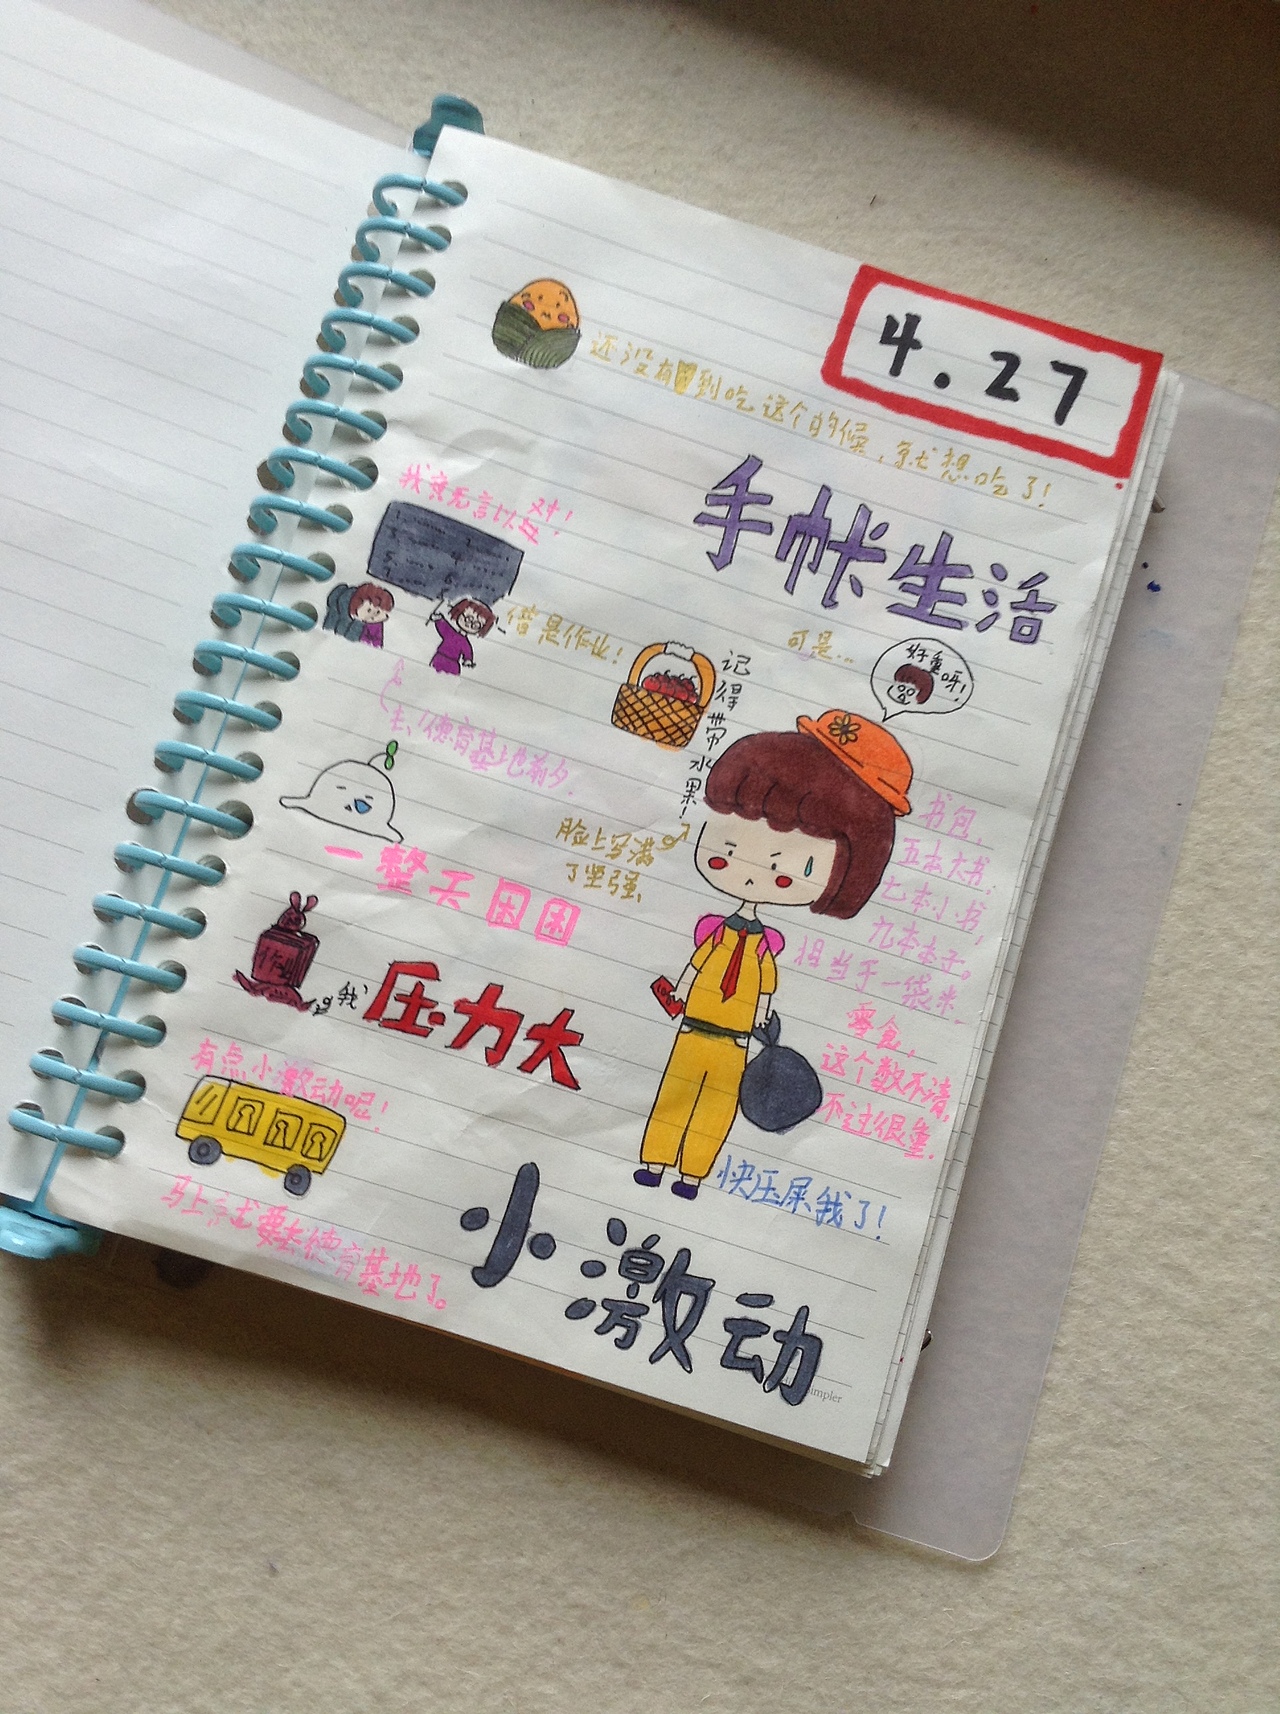 4.27
还没有到吃这个的时候,就想吃了!
手帐生活
我竟无言以对!
借是作业!
去德育基地前夕.
可是...
好重呀!
记得带水果!
脸上写满
了坚强
一整天困困
作业
我
压力大
书包,
五本大书,
七本小书,
九本本子。
相当于一袋米.
零食,
这个数不清,
不过很重.
快压屎我了!
有点小激动呢!
马上就要去德育基地了。
小激动